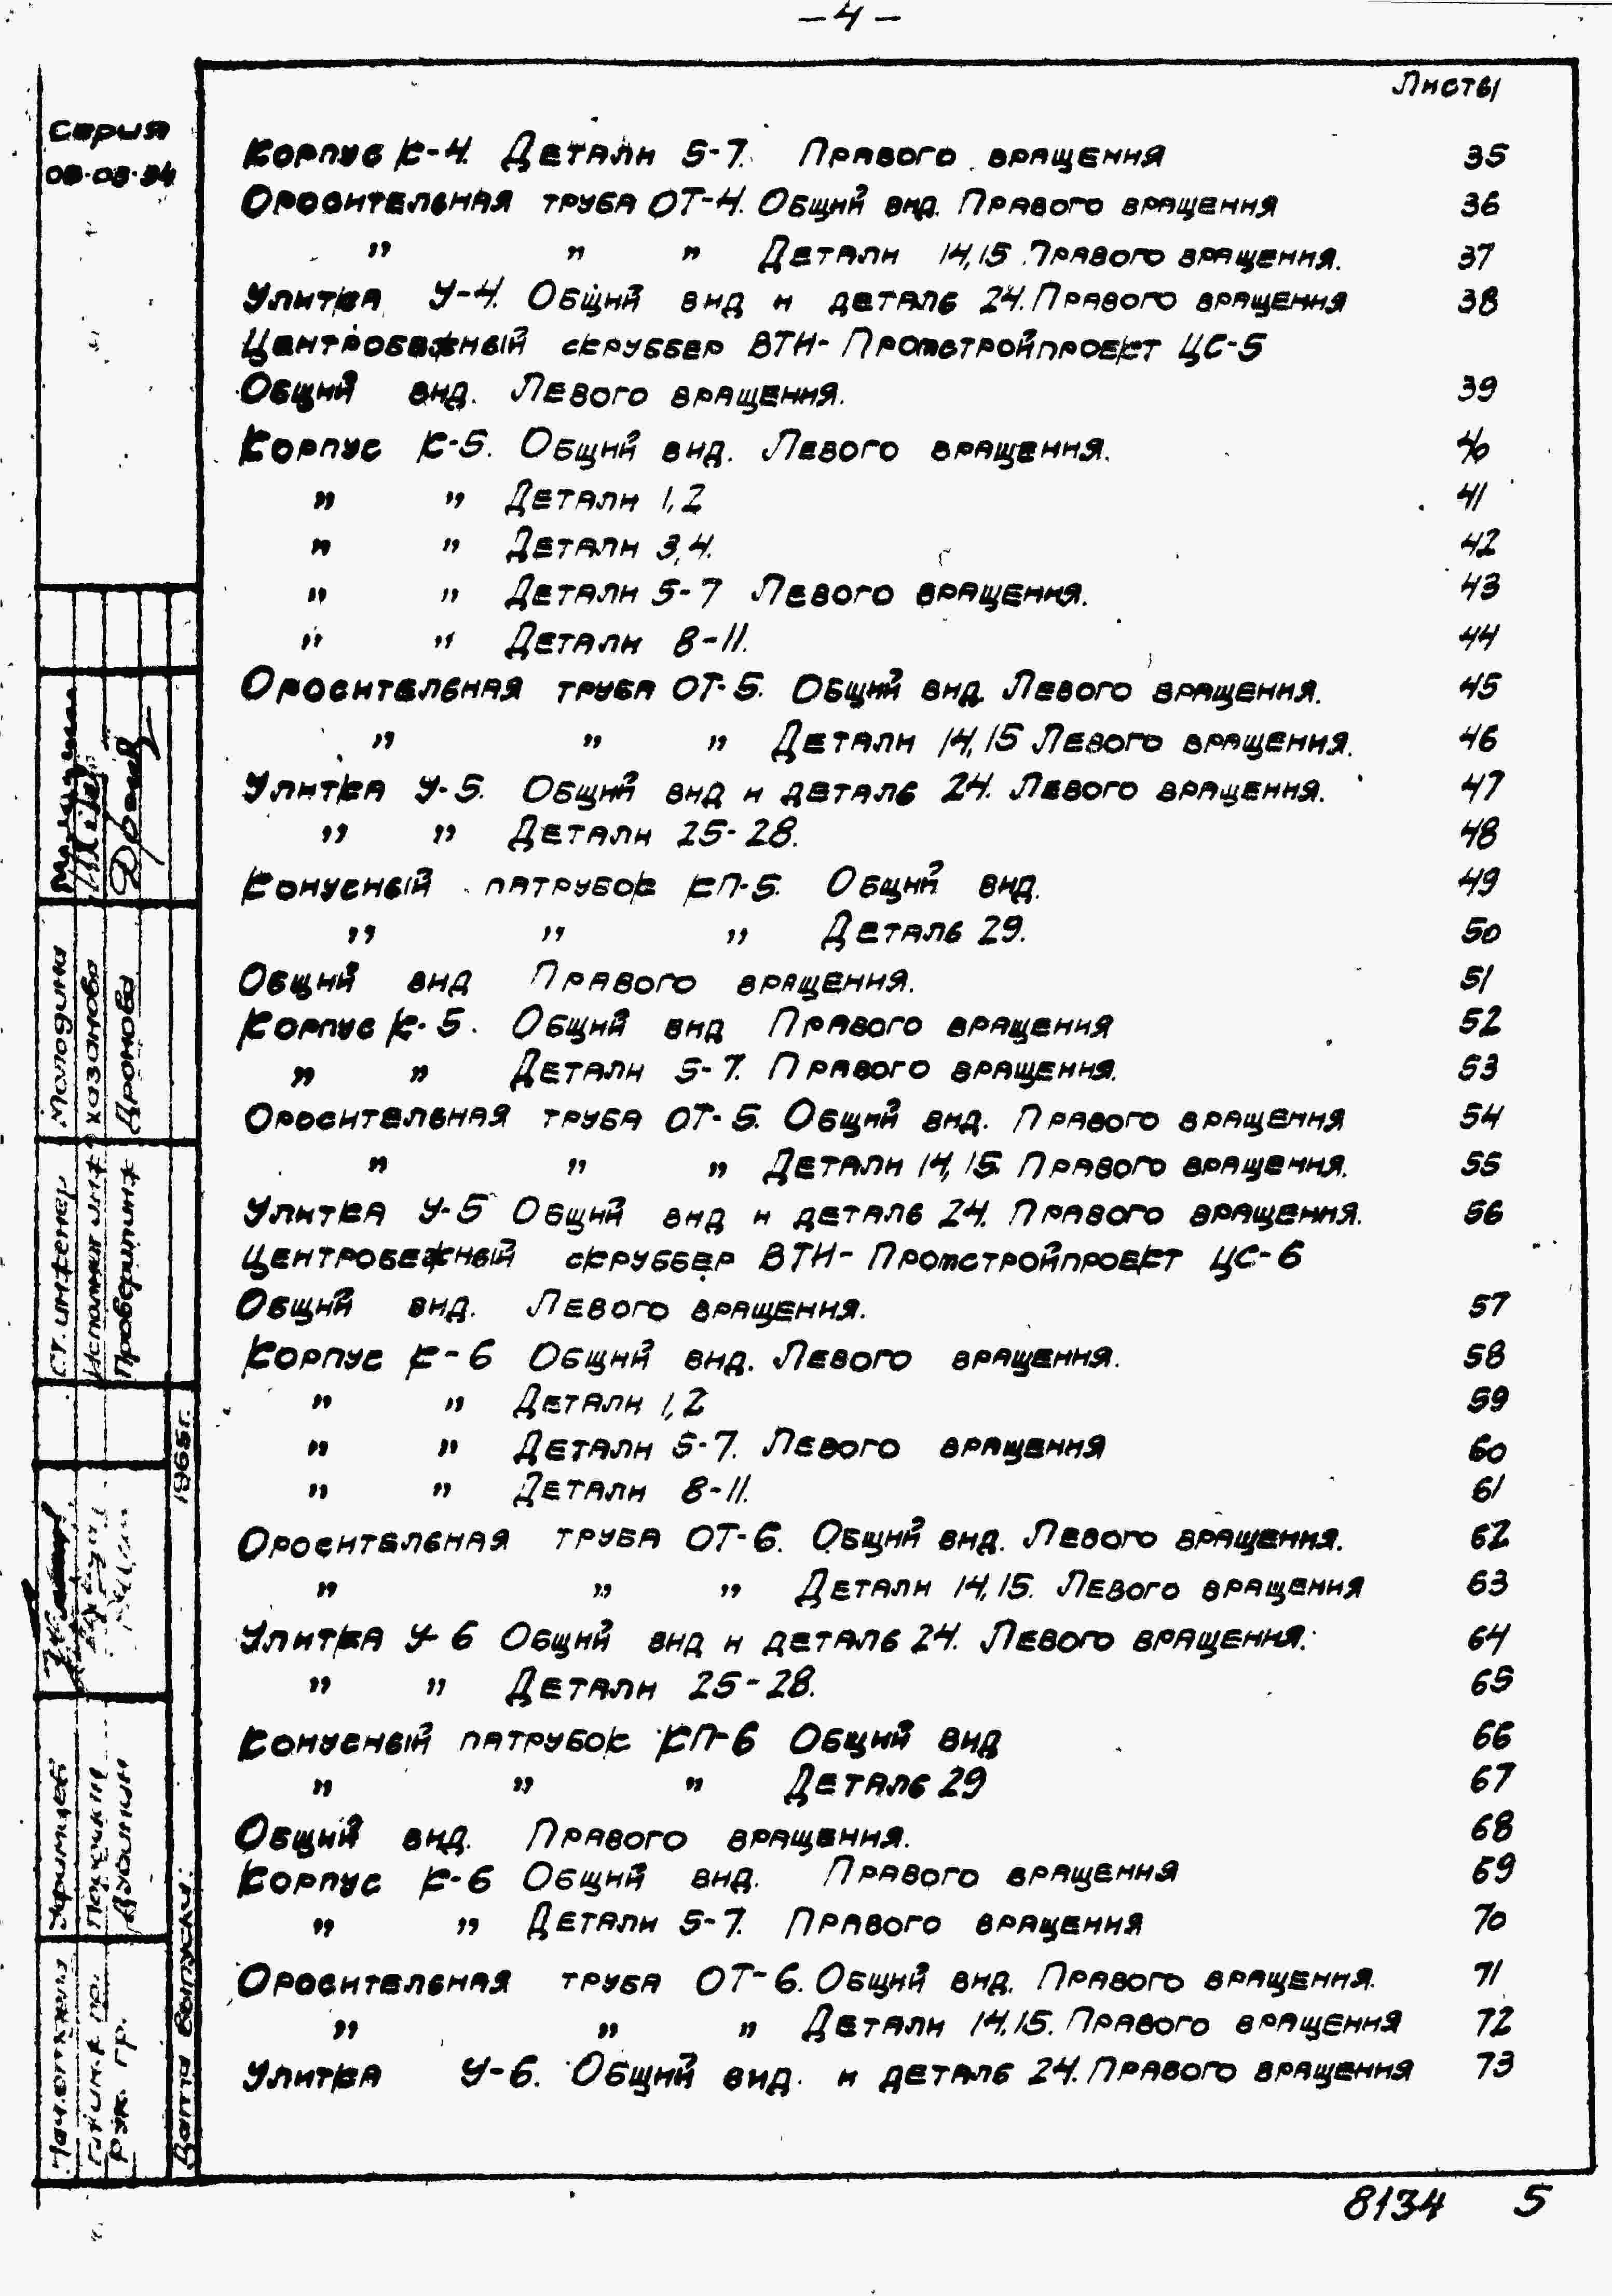 -4-
Листы
Серия
ОВ-03-94
Корпус К-4. Детали 5-7. Правого вращения 35
Оросительная труба ОТ-4. Общий вид. Правого вращения 36
" " " Детали 14,15. Правого вращения. 37
Улитка У-4. Общий вид и деталь 24. Правого вращения 38
Центробежный скруббер ВТИ-Промстройпроект ЦС-5
Общий вид. Левого вращения. 39
Корпус К-5. Общий вид. Левого вращения. 40
" " Детали 1,2 41
" " Детали 3,4. 42
" " Детали 5-7 Левого вращения. 43
" " Детали 8-11. 44
Оросительная труба ОТ-5. Общий вид. Левого вращения. 45
" " " Детали 14,15 Левого вращения. 46
Улитка У-5. Общий вид и деталь 24. Левого вращения. 47
" " Детали 25-28. 48
Конусный патрубок КП-5. Общий вид. 49
" " " Деталь 29. 50
Общий вид Правого вращения. 51
Корпус К-5. Общий вид Правого вращения 52
" " Детали 5-7. Правого вращения. 53
Оросительная труба ОТ-5. Общий вид. Правого вращения 54
" " " Детали 14,15. Правого вращения. 55
Улитка У-5 Общий вид и деталь 24. Правого вращения. 56
Центробежный скруббер ВТИ-Промстройпроект ЦС-6
Общий вид. Левого вращения. 57
Корпус К-6 Общий вид. Левого вращения. 58
" " Детали 1,2 59
" " Детали 5-7. Левого вращения 60
" " Детали 8-11. 61
Оросительная труба ОТ-6. Общий вид. Левого вращения. 62
" " " Детали 14,15. Левого вращения 63
Улитка У-6 Общий вид и деталь 24. Левого вращения. 64
" " Детали 25-28. 65
Конусный патрубок КП-6 Общий вид 66
" " " Деталь 29 67
Общий вид. Правого вращения. 68
Корпус К-6 Общий вид. Правого вращения 69
" " Детали 5-7. Правого вращения 70
Оросительная труба ОТ-6. Общий вид. Правого вращения. 71
" " " Детали 14,15. Правого вращения 72
Улитка У-6. Общий вид. и деталь 24. Правого вращения 73
Ст. инженер Молодина
Исполнил инж Казанова
Проверил инж Дронова
Нач. отдела
Гл. инж. пр.
Рук. гр.
Дата выпуска: 1965г.
8134 5